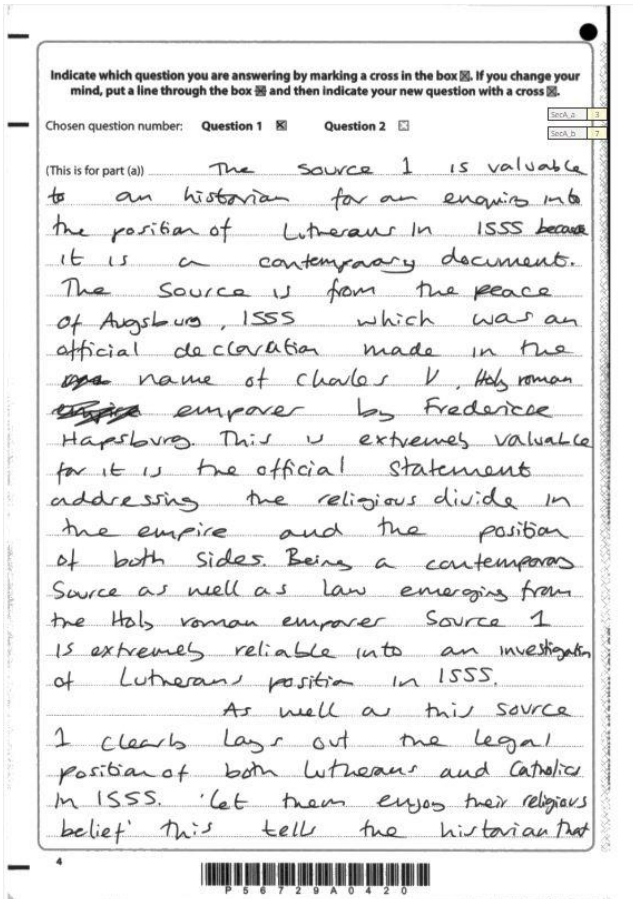 Indicate which question you are answering by marking a cross in the box ☒. If you change your
mind, put a line through the box and then indicate your new question with a cross ☒.
SecA_a 3
Chosen question number: Question 1 ☒ Question 2 ☐
SecA_b 7
(This is for part (a)) The source 1 is valuable
to an historian for an enquiry into
the position of Lutherans In 1555 because
it is a contemporary document.
The Source is from the peace
of Augsburg, 1555 which was an
official declaration made in the
name of Charles V, Holy roman
emporer by Fredericke
Hapsburg. This is extremely valuable
for it is the official statement
addressing the religious divide in
the empire and the position
of both sides. Being a contemporary
Source as well as law emerging from
the Holy roman emporer Source 1
is extremely reliable into an investigation
of Lutherans position in 1555.
As well as this source
1 clearly lays out the legal
position of both Lutherans and Catholics
In 1555. 'let them enjoy their religious
belief' this tells the historian that
4
P56729A0420